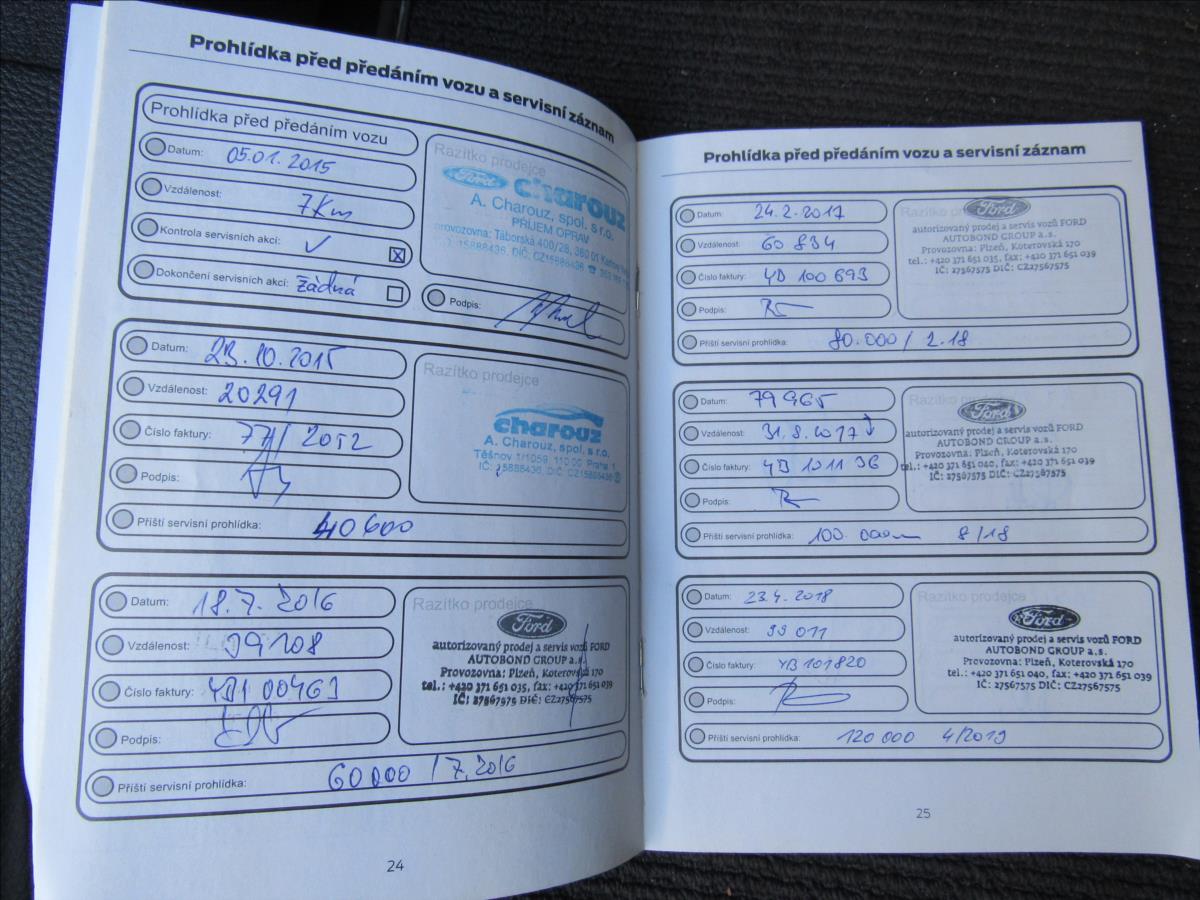 Prohlídka před předáním vozu a servisní záznam
Prohlídka před předáním vozu
Datum: 05.01.2015
Vzdálenost: 7km
Kontrola servisních akcí: ✓ ☒
Dokončení servisních akcí: žádná ☐
Razítko prodejce
Ford charouz
A. Charouz, spol. s r.o.
PŘÍJEM OPRAV
provozovna: Táborská 400/28, 360 01 Karlovy
15888436, DIČ: CZ15888436 ☎ 353
Podpis:
Datum: 23.10.2015
Vzdálenost: 20291
Číslo faktury: 2052
Podpis:
Příští servisní prohlídka: 40600
Razítko prodejce
charouz
A. Charouz, spol. s r.o.
Těšnov 1/1059, 110 00 Praha 1
IČ: 15888436, DIČ: CZ15888436
Datum: 18.7.2016
Vzdálenost: 39108
Číslo faktury: 4B1 00463
Podpis:
Příští servisní prohlídka: 60000 / 7.2016
Razítko prodejce
Ford
autorizovaný prodej a servis vozů FORD
AUTOBOND GROUP a.s.
Provozovna: Plzeň, Koterovská 170
tel.: +420 371 651 035, fax: +420 371 651 039
IČ: 27567575 DIČ: CZ27567575
24
Prohlídka před předáním vozu a servisní záznam
Datum: 24.2.2017
Vzdálenost: 60 834
Číslo faktury: 4B 100 693
Podpis:
Příští servisní prohlídka: 80.000 / 2.18
Razítko
Ford
autorizovaný prodej a servis vozů FORD
AUTOBOND GROUP a.s.
Provozovna: Plzeň, Koterovská 170
tel.: +420 371 651 035, fax: +420 371 651 039
IČ: 27567575 DIČ: CZ27567575
Datum: 79965
Vzdálenost: 31.8.2017
Číslo faktury: 4B 1011 36
Podpis:
Příští servisní prohlídka: 100.000 8/18
Razítko
Ford
autorizovaný prodej a servis vozů FORD
AUTOBOND GROUP a.s.
Provozovna: Plzeň, Koterovská 170
tel.: +420 371 651 040, fax: +420 371 651 039
IČ: 27567575 DIČ: CZ27567575
Datum: 23.4.2018
Vzdálenost: 99 011
Číslo faktury: 4B 101820
Podpis:
Příští servisní prohlídka: 120 000 4/2019
Razítko prodejce
Ford
autorizovaný prodej a servis vozů FORD
AUTOBOND GROUP a.s.
Provozovna: Plzeň, Koterovská 170
tel.: +420 371 651 040, fax: +420 371 651 039
IČ: 27567575 DIČ: CZ27567575
25